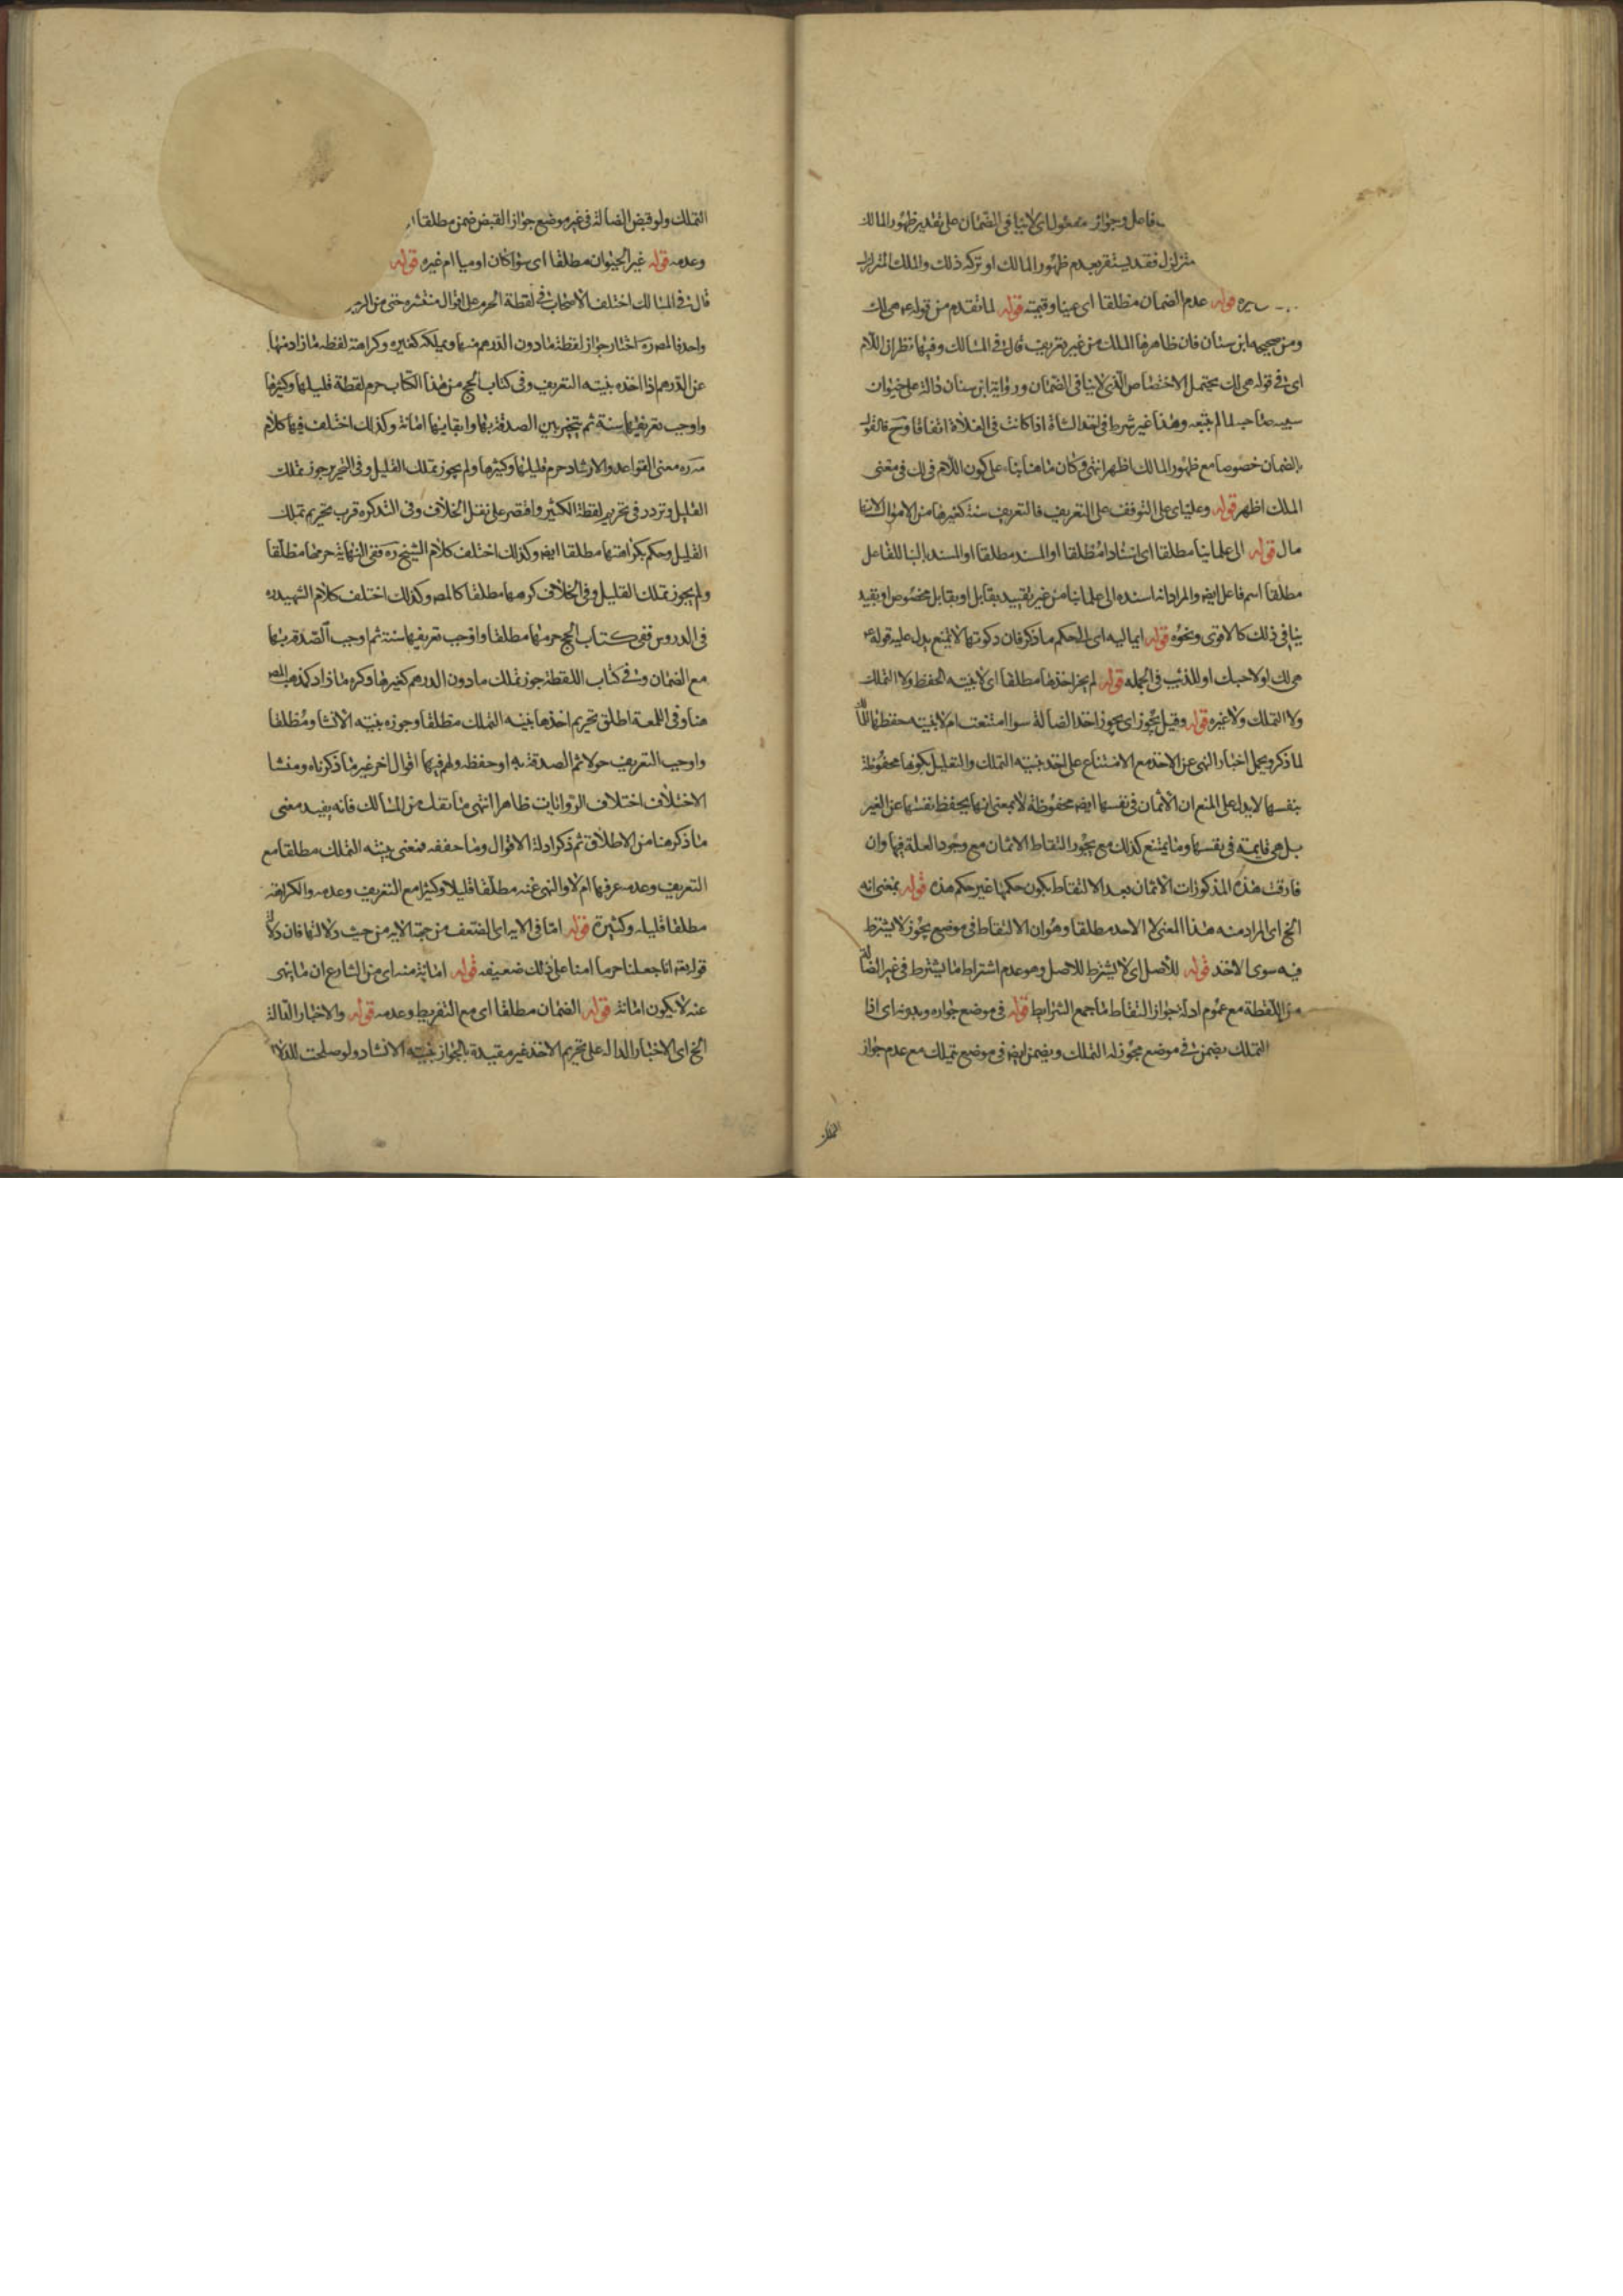 فاعل وجواز مفعول اى لاينافى الضمان على تقدير ظهور المالك
متزلزل فقد يستقر بعدم ظهور المالك او تركه ذلك والملك المتزلزل
قوله عدم الضمان مطلقا اى عينا وقيمة قوله لما تقدم من قوله هى لك
ومن صحيحه ابن سنان فان ظاهرها الملك من غير تعريف قال فى المسالك وفيهما نظر اذ اللام
اى فى قوله هى لك يحتمل الاختصاص الذى لاينافى الضمان ورواية ابن سنان دالة على حيوان
سيبه صاحبه لما لم يتبعه وهذا غير شرط فى اخذ الشاة اذا كانت فى الفلاة اتفاقا وح فالقول
بالضمان خصوصا مع ظهور المالك اظهر انتهى وكان ما هنا بناء على كون اللام فى لك فى معنى
الملك اظهر قوله وعليه اى على التوقف على التعريف فالتعريف سنة كغيرها من الاموال لانها
مال قوله الى علمائنا مطلقا اى اسنادا مطلقا او المسند مطلقا او المسند بالبنا للفاعل
مطلقا اسم فاعل ايضا والمراد انه اسنده الى علمائنا من غير تقييد بقابل او بقابل مخصوص او بقيد
ينافى ذلك كالاقوى ونحوه قوله ايما اليه اى الى الحكم ما ذكر فان دكوتها لا تمنع يدل عليه قوله
هى لك او لاخيك او للذئب فى الجمله قوله لم يجز اخذها مطلقا اى لا بنية الحفظ ولا التملك
ولا التملك ولا غيره قوله وقيل يجوز اى يجوز اخذ الضالة سوا امتنعت ام لا بنية حفظها
لما ذكر ويحمل اخبار النهى عن الاخذ مع الامتناع على اخذ بنية التملك والتعليل بكونها محفوظة
بنفسها لا يدل على المنع ان الاثمان فى نفسها ايضا محفوظة لا بمعنى انها يحفظ نفسها عن الغير
بل هى قايمة فى نفسها وما يمتنع كذلك مع يجوز التقاط الاثمان مع وجود العلة فيها وان
فارقت هذه المذكورات الاثمان بعد الالتقاط بكون حكمها غير حكم هذه قوله بمعنى انه
الخ اى المراد منه هذا المعنى لا الاحد مطلقا وهو ان الالتقاط فى موضع يجوز لا يشترط
فيه سوى الاخذ قوله للاصل اى لا يشترط للاصل وهو عدم اشتراط ما يشترط فى غير الضالة
من اللقطة مع عموم ادلة جواز التقاط ما جمع الشرايط قوله فى موضع جوازه وبدونه اى اذا
التملك يضمن فى موضع يجوز له التملك ويضمن ايضا فى موضع تملك مع عدم جواز
التملك
التملك ولو قبض الضالة فى غير موضع جواز القبض ضمن مطلقا
وعدمه قوله غير الحيوان مطلقا اى سوا كان اوميا ام غيره قوله
قال فى المسالك اختلف الاصحاب فى لقطة الحرم على اقوال منتشره حتى من الرجل
واحد فالمصره اختار جواز لقطة ما دون الدرهم منها ويملكه كغيره وكراهة لقطة ما زاد منها
عن الدرهم اذا اخذه بنية التعريف وفى كتاب الحج من هذا الكتاب حرم لقطة قليلها وكثيرها
واوجب تعريفها سنة ثم يتخير بين الصدقة بها وابقائها امانة وكذلك اختلف فيها كلام
ففى القواعد والارشاد حرم قليلها وكثيرها ولم يجوز تملك القليل وفى التحرير جوز تملك
القليل وتردد فى تحريم لقطة الكثير واقتصر على نقل الخلاف وفى التذكرة قرب تحريم تملك
القليل وحكم بكراهتها مطلقا ايضا وكذلك اختلف كلام الشيخ ره ففى النهاية حرمها مطلقا
ولم يجوز تملك القليل وفى الخلاف كرهها مطلقا كالمصر وكذلك اختلف كلام الشهيد ره
فى الدروس ففى كتاب الحج حرمها مطلقا واوجب تعريفها سنة ثم اوجب الصدقة بها
مع الضمان وفى كتاب اللقطة جوز تملك ما دون الدرهم كغيرها وكره ما زاد كمذهب المصر
هنا وفى اللمعة اطلق تحريم اخذها بنية التملك مطلقا وجوزه بنية الانشاد مطلقا
واوجب التعريف حولا ثم الصدقة به او حفظه ولهم فيها اقوال اخر غير ما ذكرناه ومنشا
الاختلاف اختلاف الروايات ظاهرا انتهى ما نقلته من المسالك فانه يفيد معنى
ما ذكر هنا من الاطلاق ثم ذكر ادلة الاقوال وما حققه فمعنى بنية التملك مطلقا مع
التعريف وعدمه عرفها ام لا والنهى عنه مطلقا قليلا وكثيرا مع التعريف وعدمه والكراهة
مطلقا قليله وكثيره قوله اما فى الايه اى الضعف من جهة الايه من حيث دلالتها فان دلالة
قوله تعه انا جعلنا حرما امنا على ذلك ضعيفه قوله امانة منه اى من الشارع ان ما ينهى
عنه لا يكون امانة قوله الضمان مطلقا اى مع التفريط وعدمه قوله والاخبار الدالة
الخ اى الاخبار الداله على تحريم الاخذ غير مقيدة بالجواز بنية الانشاد ولو صلحت للدلالة